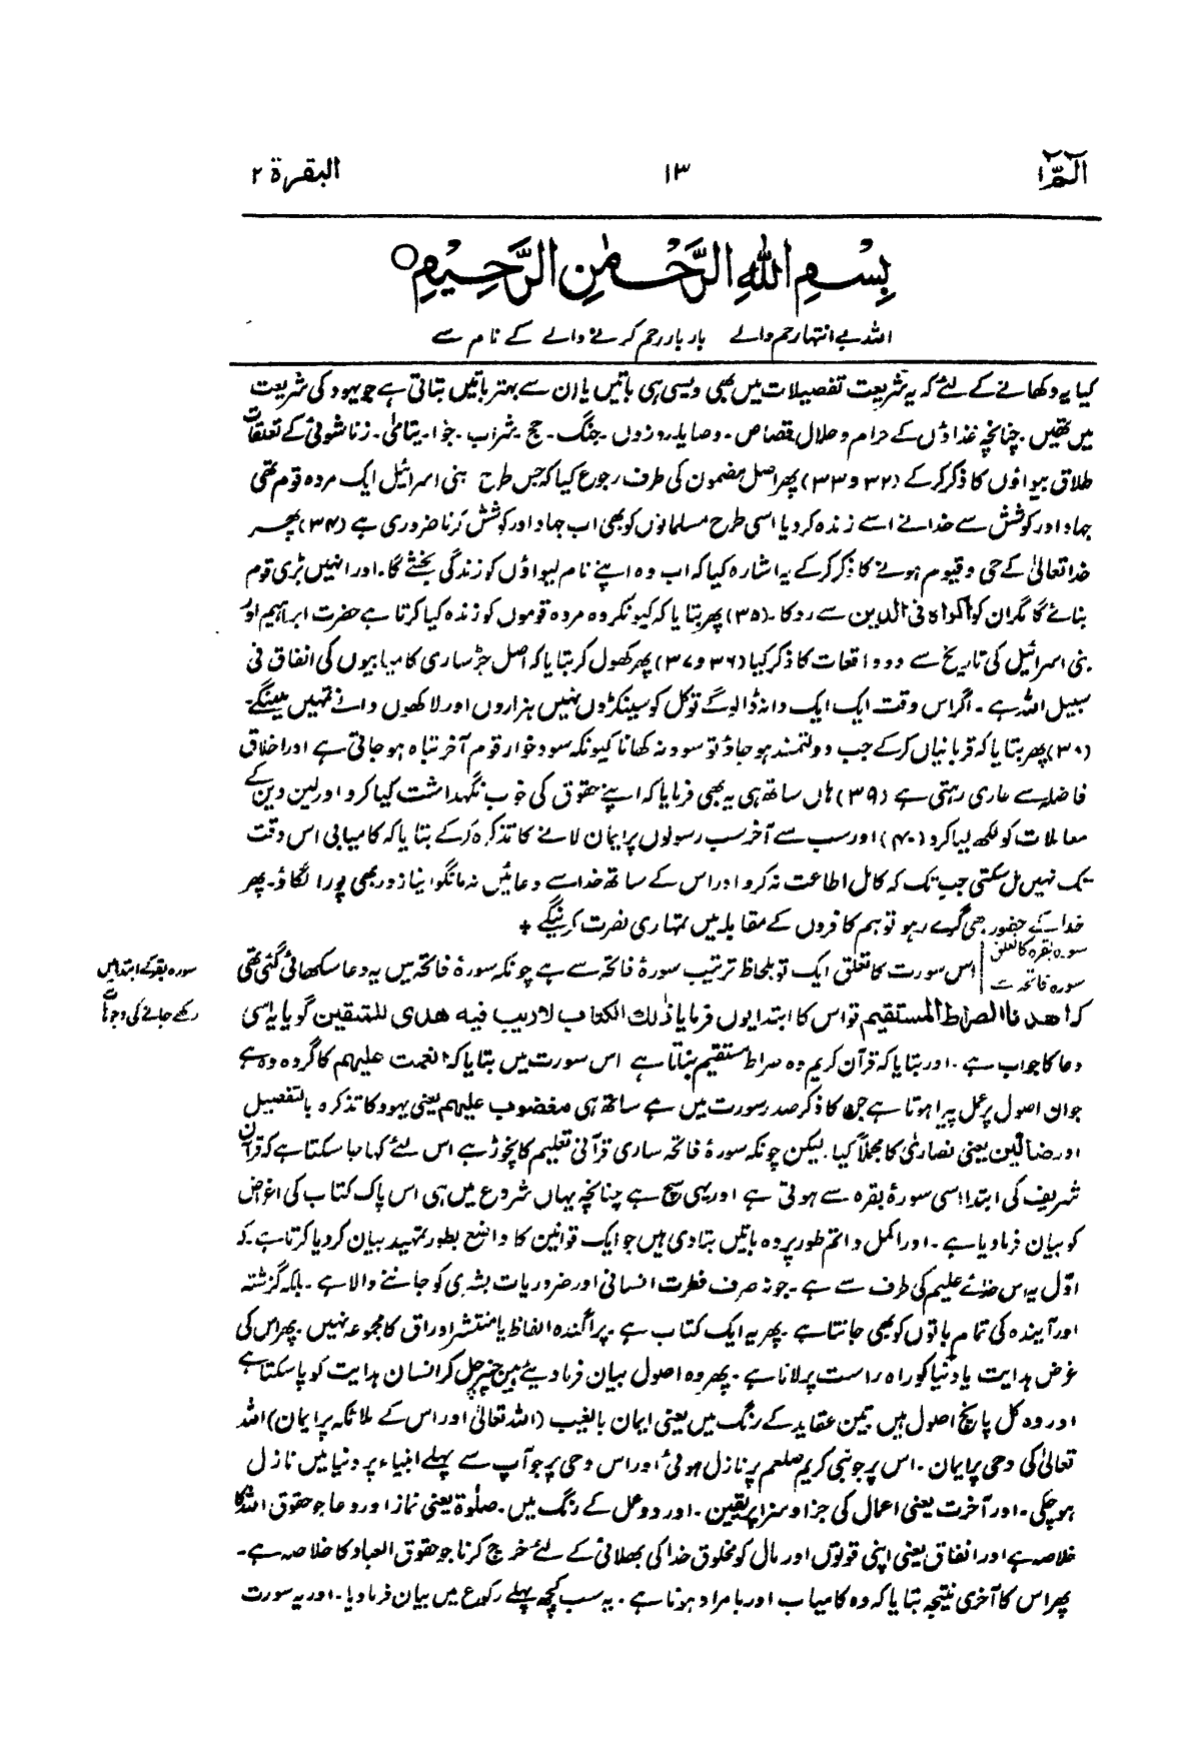 الٓمّٓ ۱
۱۳
البقرۃ ۲
بِسْمِ اللّٰهِ الرَّحْمٰنِ الرَّحِيْمِ○
اللہ بے انتہا رحم والے بار بار رحم کرنے والے کے نام سے
کیا یہ دکھانے کے لئے کہ یہ شریعت تفصیلات میں بھی ویسی ہی باتیں یا ان سے بہتر باتیں بتاتی ہے جو یہود کی شریعت
میں تھیں۔ چنانچہ غذاؤں کے حرام و حلال، قصاص۔ وصایا۔ روزوں۔ جنگ۔ حج۔ شراب۔ جوا۔ یتامیٰ۔ زناشوئی کے تعلقات
طلاق بیواؤں کا ذکر کرکے (۳۲ و ۳۳) پھر اصل مضمون کی طرف رجوع کیا کہ جس طرح بنی اسرائیل ایک مردہ قوم تھی
جہاد اور کوشش سے خدا نے اسے زندہ کر دیا اسی طرح مسلمانوں کو بھی اب جہاد اور کوشش کرنا ضروری ہے (۳۴) پھر
خدا تعالیٰ کے حی و قیوم ہونے کا ذکر کرکے یہ اشارہ کیا کہ اب وہ اپنے نام لیواؤں کو زندگی بخشے گا۔ اور انہیں بڑی قوم
بنائے گا مگر ان کو اکراہ فی الدین سے روکا۔ (۳۵) پھر بتایا کہ کیونکر وہ مردہ قوموں کو زندہ کیا کرتا ہے حضرت ابراہیم اور
بنی اسرائیل کی تاریخ سے دو واقعات کا ذکر کیا (۳۶ و ۳۷) پھر کھول کر بتایا کہ اصل جڑ ساری کامیابیوں کی انفاق فی
سبیل اللہ ہے۔ اگر اس وقت ایک ایک دانہ ڈالو گے تو کل کو سینکڑوں نہیں ہزاروں اور لاکھوں دانے تمہیں ملینگے۔
(۳۰) پھر بتایا کہ قربانیاں کرکے جب دولتمند ہو جاؤ تو سود نہ کھانا کیونکہ سود خوار قوم آخر تباہ ہو جاتی ہے اور اخلاق
فاضلہ سے عاری رہتی ہے (۳۹) ہاں ساتھ ہی یہ بھی فرمایا کہ اپنے حقوق کی خوب نگہداشت کیا کرو اور لین دین کے
معاملات کو لکھ لیا کرو (۴۰) اور سب سے آخر سب رسولوں پر ایمان لانے کا تذکرہ کرکے بتایا کہ کامیابی اس وقت
تک نہیں مل سکتی جب تک کہ کامل اطاعت نہ کرو اور اس کے ساتھ خدا سے دعائیں نہ مانگو اپنا زور بھی پورا لگاؤ۔ پھر
خدا کے حضور بھی گرے رہو تو ہم کافروں کے مقابلہ میں تمہاری نصرت کرینگے +
سورہ بقرہ کا تعلق
سورہ فاتحہ سے
اس سورت کا تعلق ایک تو بلحاظ ترتیب سورۂ فاتحہ سے ہے چونکہ سورۂ فاتحہ میں یہ دعا سکھائی گئی تھی
سورہ بقرہ کے ابتدا میں
رکھے جانے کی وجوہات
کہ اھدنا الصراط المستقیم تو اس کا ابتدا یوں فرمایا ذٰلک الکتاب لاریب فیہ ھدی للمتقین گویا یہ اسی
دعا کا جواب ہے۔ اور بتایا کہ قرآن کریم وہ صراط مستقیم بتاتا ہے اس سورت میں بتایا کہ انعمت علیہم کا گروہ وہ ہے
جو ان اصول پر عمل پیرا ہوتا ہے جن کا ذکر صدر سورت میں ہے ساتھ ہی مغضوب علیہم یعنی یہود کا تذکرہ بالتفصیل
اور ضالین یعنی نصاریٰ کا مجملاً کیا۔ لیکن چونکہ سورۂ فاتحہ ساری قرآنی تعلیم کا نچوڑ ہے اس لئے کہا جا سکتا ہے کہ قرآن
شریف کی ابتدا اسی سورۂ بقرہ سے ہوتی ہے اور یہی سچ ہے چنانچہ یہاں شروع میں ہی اس پاک کتاب کی اغراض
کو بیان فرما دیا ہے۔ اور اکمل و اتم طور پر وہ باتیں بتا دی ہیں جو ایک قوانین کا واضع بطور تمہید بیان کر دیا کرتا ہے۔ کہ
اوّل یہ اس خدائے علیم کی طرف سے ہے۔ جو نہ صرف فطرت انسانی اور ضروریات بشری کو جاننے والا ہے۔ بلکہ گزشتہ
اور آیندہ کی تمام باتوں کو بھی جانتا ہے۔ پھر یہ ایک کتاب ہے۔ پراگندہ الفاظ یا منتشر اوراق کا مجموعہ نہیں۔ پھر اس کی
غرض ہدایت یا دنیا کو راہ راست پر لانا ہے۔ پھر وہ اصول بیان فرما دیئے ہیں جن پر چل کر انسان ہدایت کو پا سکتا ہے
اور وہ کل پانچ اصول ہیں تین عقاید کے رنگ میں یعنی ایمان بالغیب (اللہ تعالیٰ اور اس کے ملائکہ پر ایمان) اللہ
تعالیٰ کی وحی پر ایمان۔ اس پر جو نبی کریم صلعم پر نازل ہوئی اور اس وحی پر جو آپ سے پہلے انبیاء پر دنیا میں نازل
ہو چکی۔ اور آخرت یعنی اعمال کی جزا و سزا پر یقین۔ اور دو عمل کے رنگ میں۔ صلوٰۃ یعنی نماز اور دعا جو حقوق اللہ کا
خلاصہ ہے اور انفاق یعنی اپنی قوتوں اور مال کو مخلوق خدا کی بھلائی کے لئے خرچ کرنا جو حقوق العباد کا خلاصہ ہے۔
پھر اس کا آخری نتیجہ بتایا کہ وہ کامیاب اور بامراد ہونا ہے۔ یہ سب کچھ پہلے رکوع میں بیان فرما دیا۔ اور یہ سورت